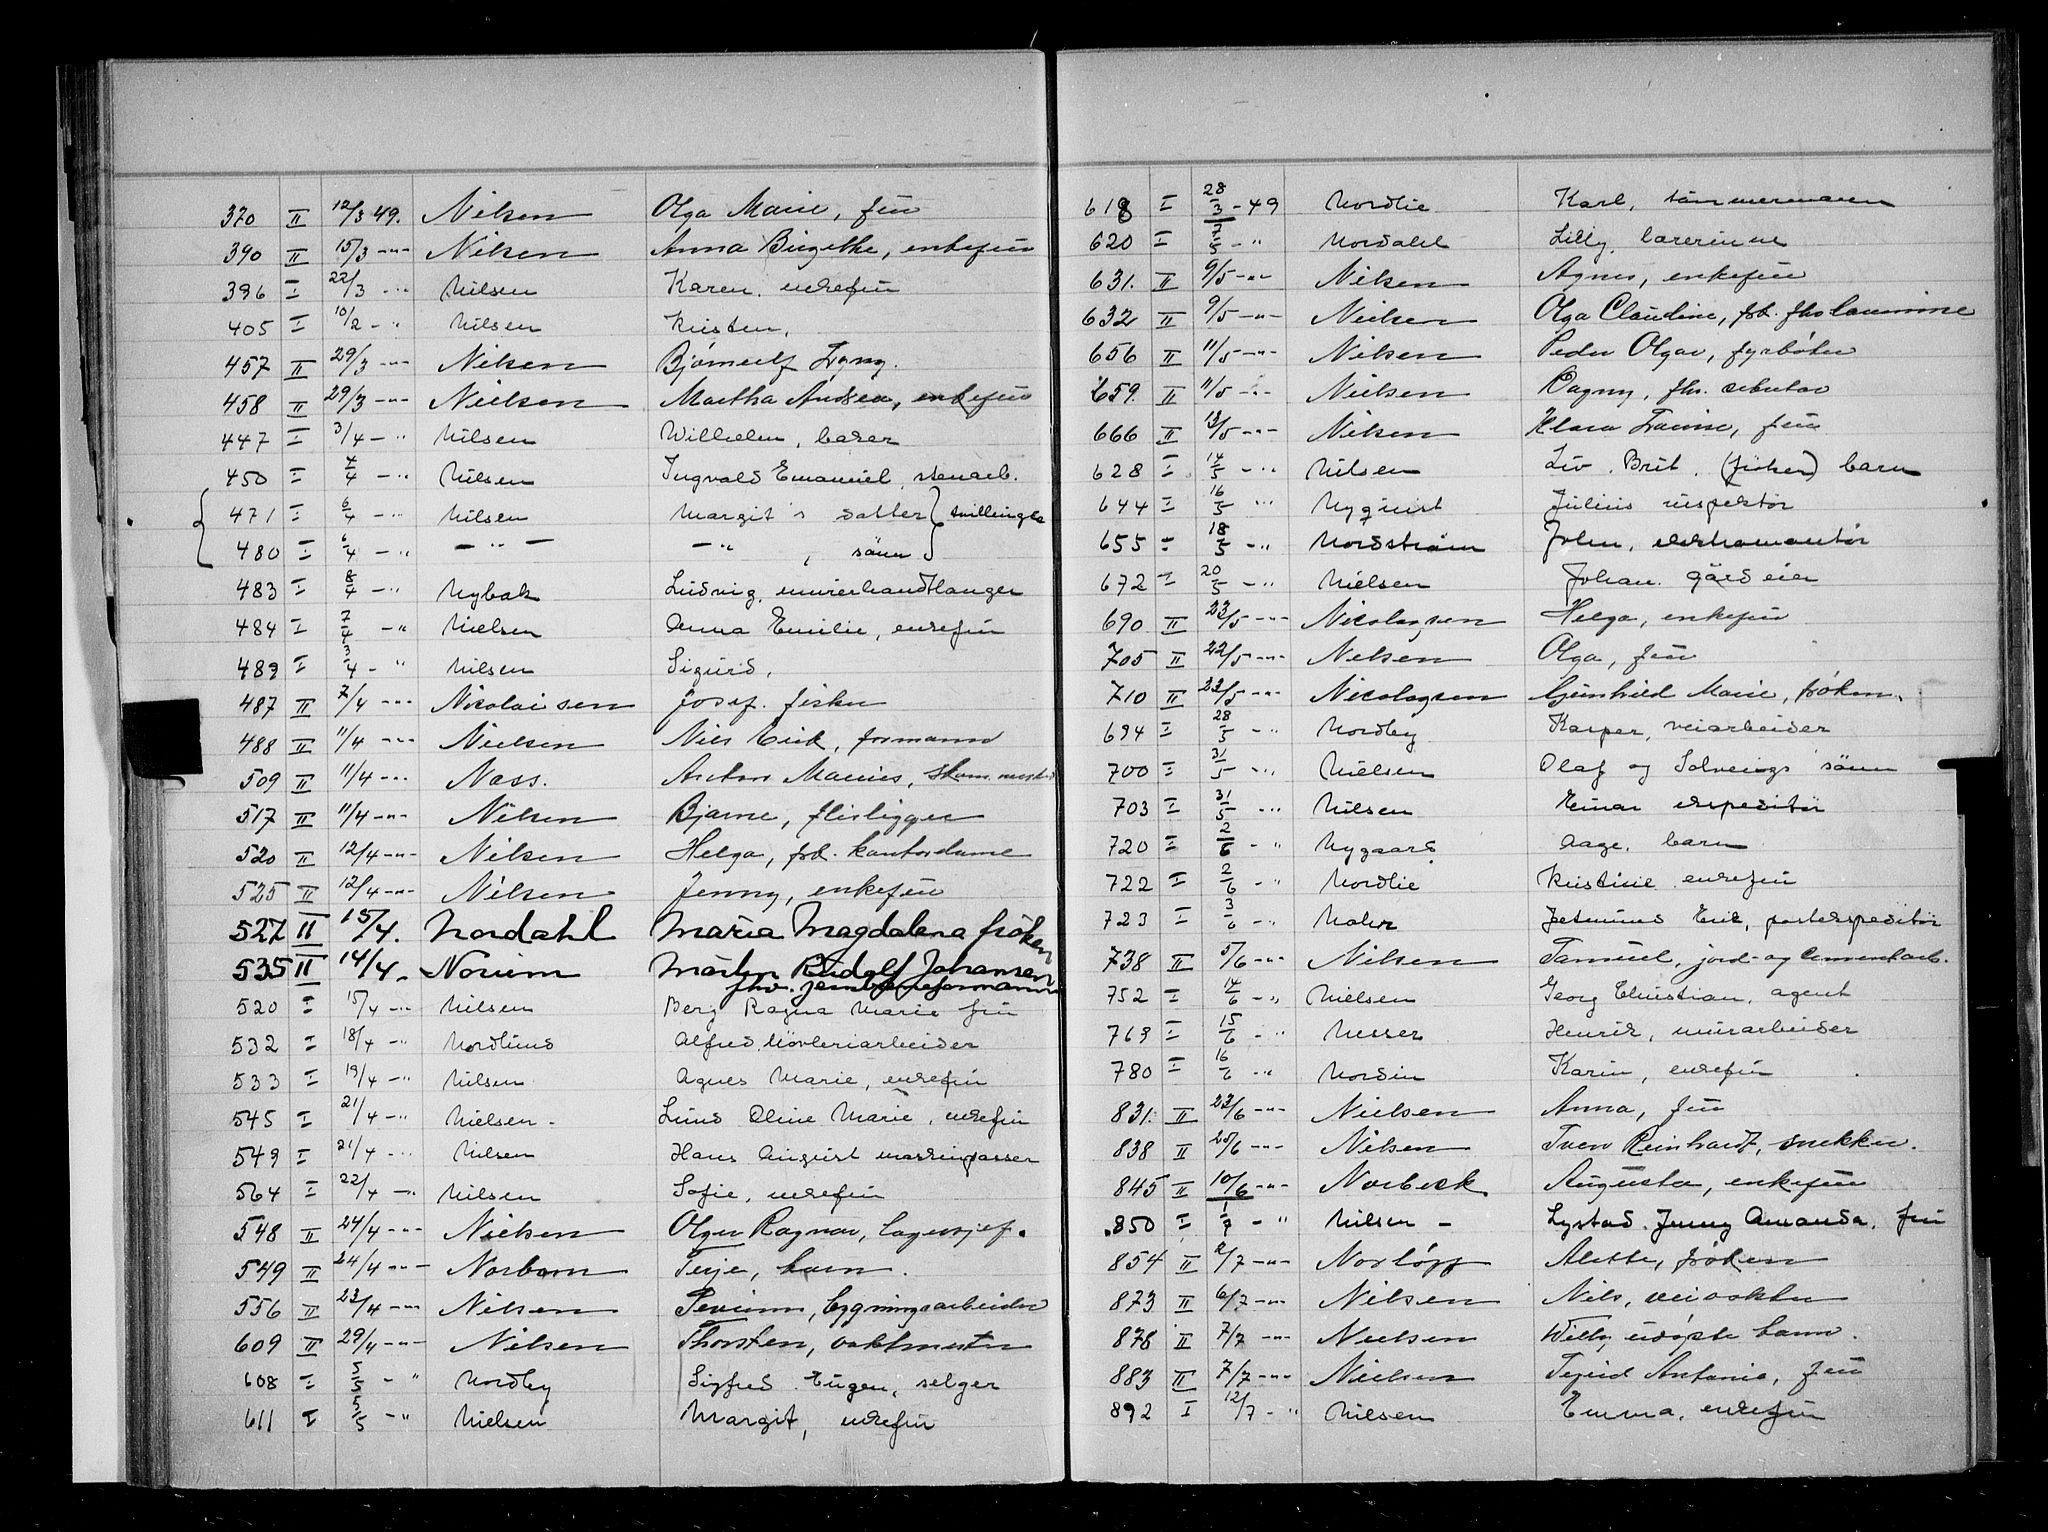 370 II 12/3 49. Nilsen Olga Marie, frue
390 II 15/3 -"- Nilsen Anna Birgithe, enkefru
396 I 22/3 -" Nilsen Karen. enkefru
405 I 10/2 -" Nilsen Kristen,
457 II 29/3 -"- Nilsen Bjørnulf
458 II 29/3 -"- Nielsen Martha Andrea, enkefru
447 I 3/4 -" Nilsen Wilhelm, barer
450 I 7/4 -" Nilsen Ingvald Emanuel, stenarb.
471 I 6/4 -" Nilsen Margit's datter } tvillinger
480 I 6/4 -" — " — — " , sønn
483 I 8/4 -" Nybak Ludvig, murerhandtlanger
484 I 7/4 -" Nielsen Anna Emilie, enkefru
489 I 3/4 -" Nilsen Sigurd,
487 II 7/4 -"- Nicolaisen Josef. fisker
488 II 11/4 -"- Nielsen Nils Erik, formann
509 II 11/4 -"- Næss. Anton Marius,
517 II 11/4 -"- Nilsen Bjarne, flisligger
520 II 12/4 -"- Nilsen Helga, frk. kontordame
525 II 12/4 -"- Nilsen Jenny, enkefru
527 II 15/4. Nordahl Maria Magdalena frøken
535 II 14/4- Norum Martin Rudolf Johansen
fhv. jernbaneformann
520 I 15/4 -" Nilsen Berg Ragna Marie fru
532 I 18/4 -" Nordlund Alfred, høvleriarbeider
533 I 19/4 -" Nilsen Agnes Marie, enkefru
545 I 21/4 -" Nielsen - Lund Oline Marie, enkefru
549 I 21/4 -" Nilsen Hans August maskinpasser
564 I 22/4 -" Nilsen Sofie, enkefru
548 II 24/4 -"- Nielsen Olger Ragnar, lagersjef.
549 II 24/4 -"- Norbom Terje, barn.
556 II 23/4 -"- Nilsen bygningsarbeider
609 II 29/4 -"- Nilsen Thorsten, vaktmester
608 I 5/5 -" Nordby Sigfred Eugen, selger
611 I 5/5 -" Nielsen Margit, enkefru
618 I 28/3 - 49 Nordlie Karl, tømmermann
620 I 7/5 -" Nordahl Lilly, lærerinne
631. II 9/5 -"- Nilsen Agnes, enkefru
632 II 9/5 -"- Nielsen Olga Claudine, frk. fhv lærerinne
656 II 11/5 -"- Nielsen Peder Olgar, fyrbøter
659. II 11/5 -"- Nielsen Dagny, fhv.
666 II 13/5 -"- Nilsen Klara frue
628 I 14/5 -" Nilsen Liv. Brit. (frøken) barn
644 I 16/5 -" Nyquist Julius inspektør
655 I 18/5 -" Nordstrøm John, elektromontør
672 I 20/5 -" Nielsen Johan. gårdeier
690 II 23/5 -"- Nicolaysen Helga, enkefru
705 II 22/5 -"- Nilsen Olga, frue
710 II 23/5 -"- Nicolaysen Gunhild Marie, frøken.
694 I 28/5 -" Nordby Kasper, veiarbeider
700 I 31/5 -" Nielsen Olaf og Solveigs sønn
703 I 31/5 -" Nilsen Einar ekspeditør
720 I 2/6 -" Nygaard Aage, barn
722 I 2/6 -" Nordlie Kristine enkefru
723 I 3/6 -" Erik, postekspeditør
738 II 5/6 -"- Nilsen Samuel, jord- og Cementarb.
752 I 14/6 -" Nielsen Georg Christian, agent
769 I 15/6 -" Nesser Henrik, murarbeider
780 I 16/6 -" Nordin Karin, enkefru
831. II 23/6 -"- Nielsen Anna, frue
838 II 25/6 -"- Nilsen Sven Reinhardt, snekker.
845 II 10/6 -"- Norbeck Augusta, enkefru
850 I 1/7 -" Nilsen - Lystad. Jenny Amanda, fru
854 II 2/7 -"- Alette, frøken
873 II 6/7 -"- Nilsen Nils, veivokter
878 II 7/7 -"- Nielsen Willy, udøpte barn.
883 II 7/7 -"- Nielsen Antonie, frue
892 I 12/7 -" Nilsen Emma, enkefru